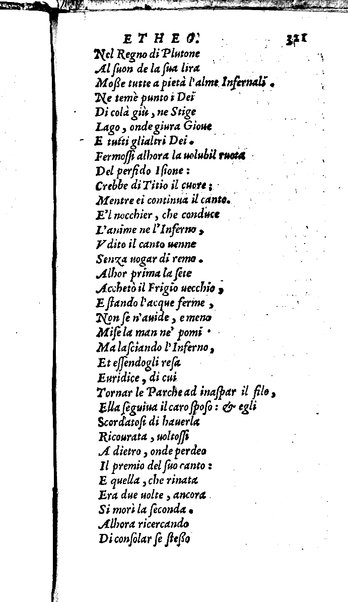 ETHEO. 321
Nel Regno di Plutone
Al ſuon de la ſua lira
Moße tutte a pietà l'alme Infernali.
Ne temè punto i Dei
Di colà giù, ne Stige
Lago, onde giura Gioue
E tutti glialtri Dei.
Fermoſſi alhora la uolubil ruota
Del perfido Iſione:
Crebbe di Titio il cuore;
Mentre ei continua il canto.
E'l nocchier, che conduce
L'anime ne l'Inferno,
Vdito il canto uenne
Senza uogar di remo.
Alhor prima la ſete
Acchetò il Frigio uecchio,
E ſtando l'acque ferme,
Non ſe n'auide, e meno
Miſe la man ne' pomi
Ma laſciando l'Inferno,
Et eſſendogli reſa
Euridice, di cui
Tornar le Parche ad inaſpar il filo,
Ella ſeguiua il caro ſpoſo: & egli
Scordatoſi di hauerla
Ricourata, uoltoſſi
A dietro, onde perdeo
Il premio del ſuo canto:
E quella, che rinata
Era due uolte, ancora
Si morì la ſeconda.
Alhora ricercando
Di conſolar ſe ſteßo